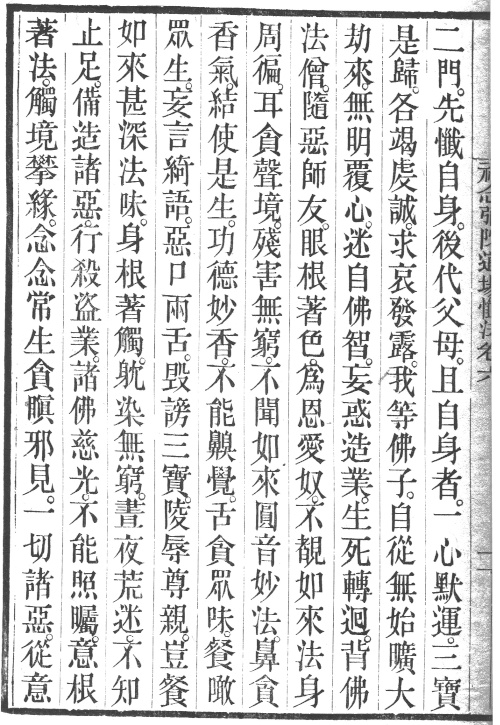 二門。先懺自身。後代父母。且自身者。一心默運。三寶
是歸。各竭虔誠。求哀發露。我等佛子。自從無始曠大
劫來。無明覆心。迷自佛智。妄惑造業。生死轉迴。背佛
法僧。隨惡師友。眼根著色。為恩愛奴。不覩如來法身
周徧。耳貪聲境。殘害無窮。不聞如來圓音妙法。鼻貪
香氣。結使是生。功德妙香。不能齅覺。舌貪眾味。餐噉
眾生。妄言綺語。惡口兩舌。毀謗三寶。陵辱尊親。豈餐
如來甚深法味。身根著觸。躭染無窮。晝夜荒迷。不知
止足。備造諸惡。行殺盜業。諸佛慈光。不能照矚。意根
著法。觸境攀緣。念念常生貪瞋邪見。一切諸惡。從意